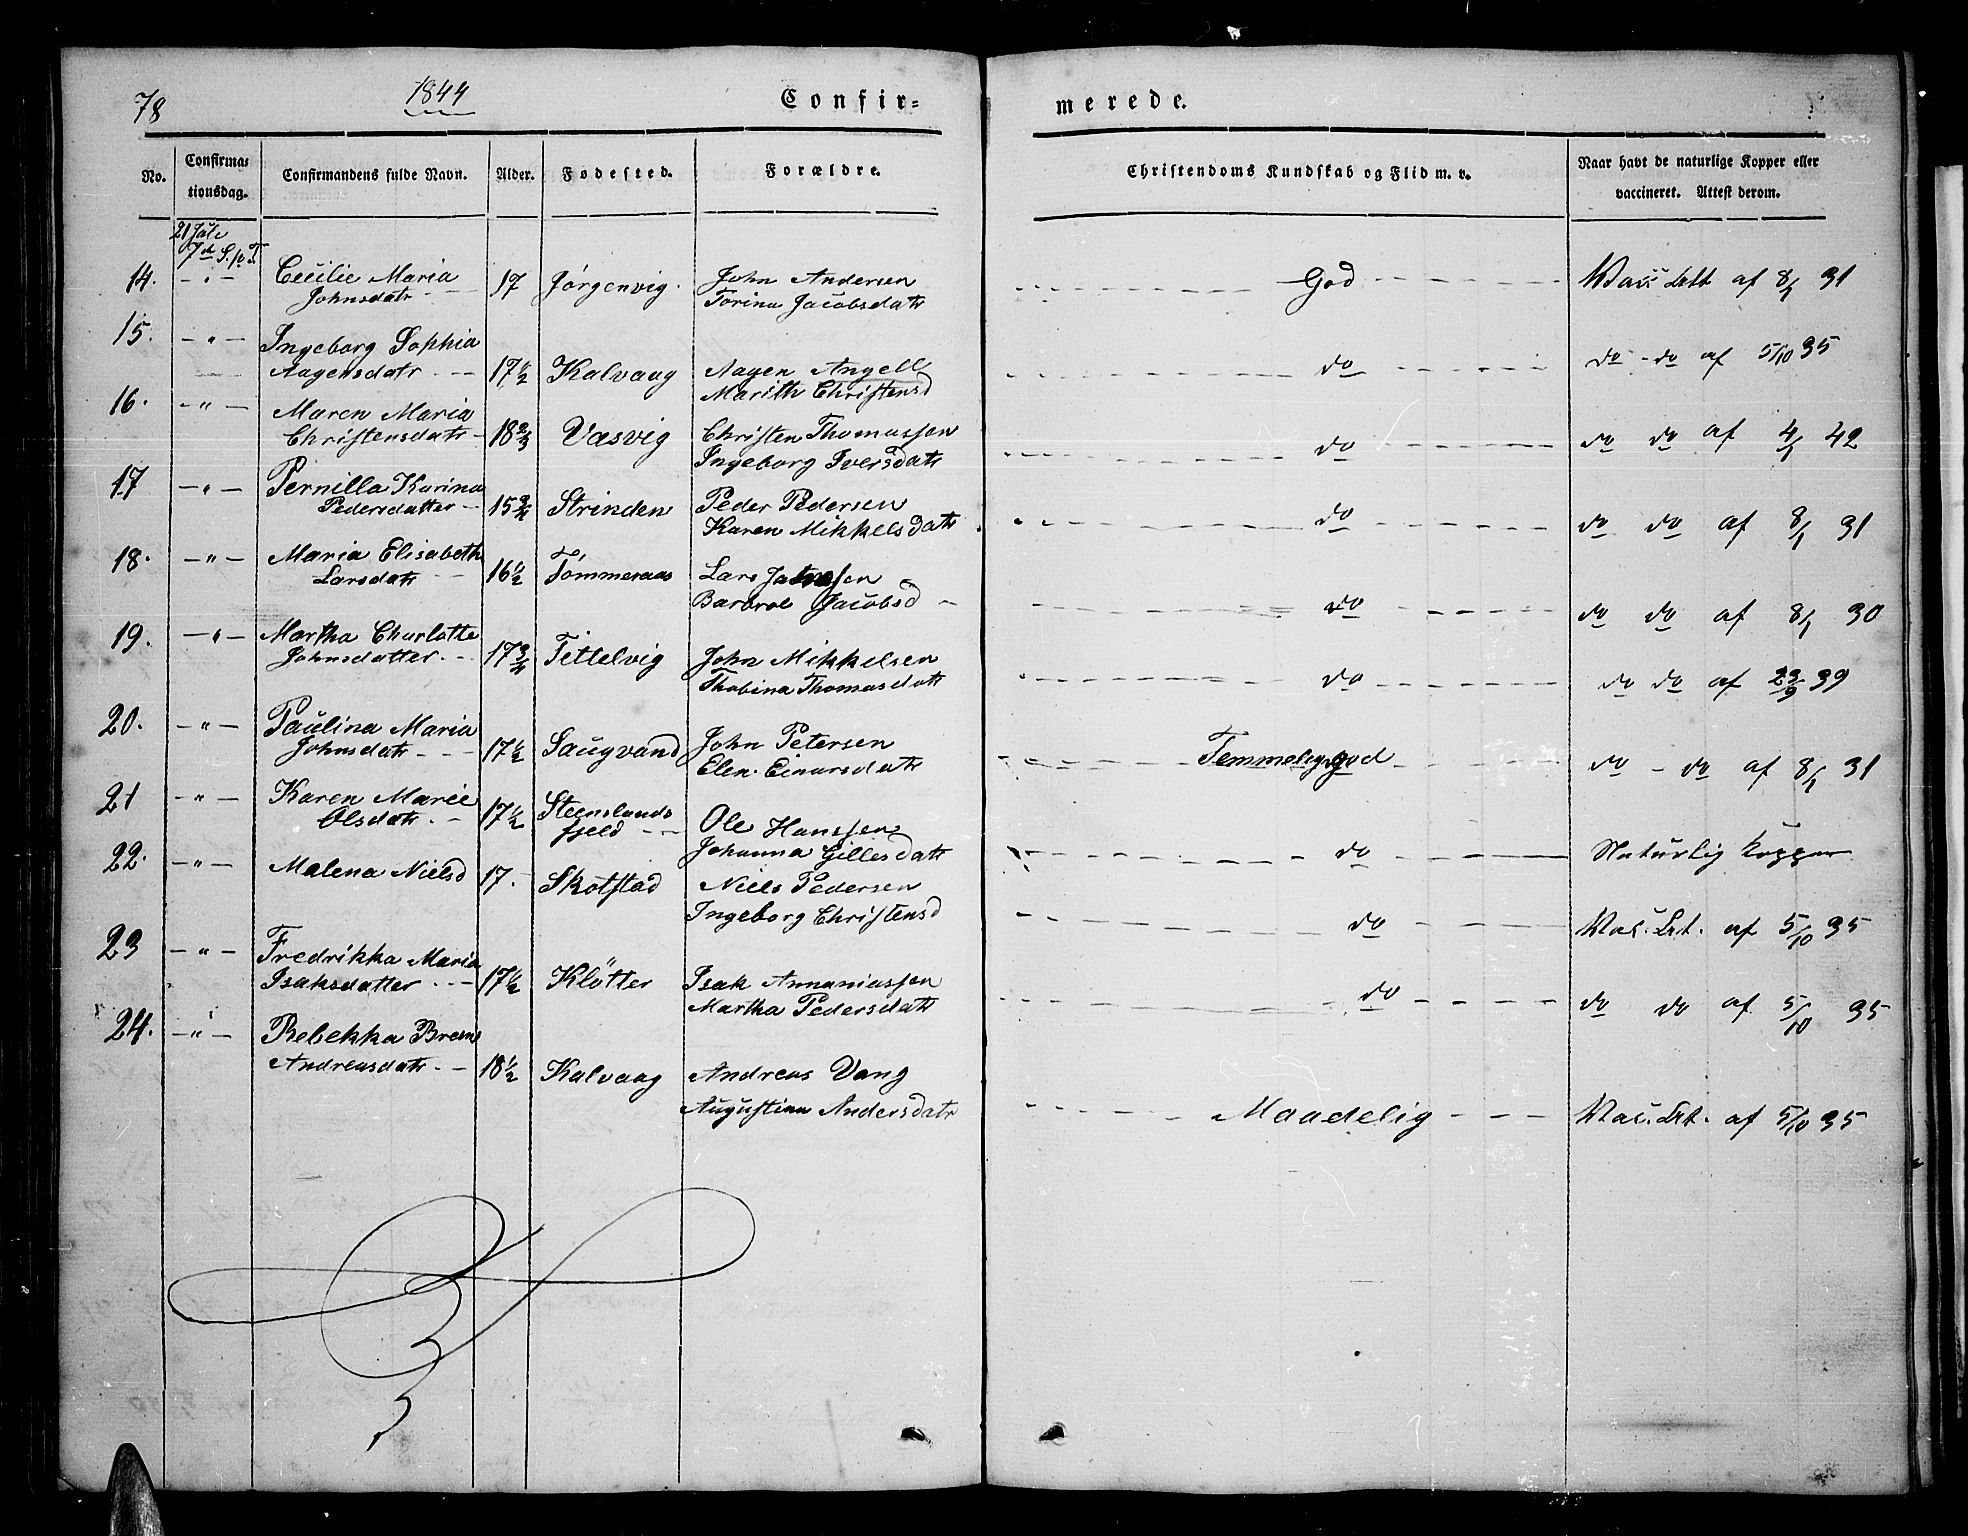 78 1844 Confir= merede.
No. Confirmationsdag. Confirmandens fulde Navn. Alder. Fødested. Forældre. Christendoms Kundskab og Flid m. v. Naar havt de naturlige Kopper eller vaccineret. Attest derom.
21 Juli
7de S. p. T.
14. -"- Cecilie Maria 17 Jørgenvig. John Andersen God Vacc. Att af 8/1 31
Johnsdatr Torina Jacobsdatr
15. -"- Ingeborg Sophia
Aagensdatr 17 1/2 Kalvaag Aagen Angell do do - do af 5/10 35
Marith Christensd
16. -"- Maren Maria
Christensdatr 18 2/3 Væsvig Christen Thomassen do do do af 4/1 42
Ingeborg Iversdatr
17 -"- Pernilla Karina
Pedersdatter 15 3/4 Strinden Peder Pedersen do do do af 8/1 31
Karen Mikkelsdatr
18. -"- Maria Elisabeth
Larsdatr 16 1/2 Tømmeraas Lars do do do af 8/1 30
Barbroe Jacobsd
19. -"- Martha Charlotte
Johnsdatter 17 3/4 Tettelvig John Mikkelsen do do do af 23/9 39
Thobina Thomasdatr
20. -"- Paulina Maria
Johnsdatr 17 1/2 Saugvand John Petersen Temmelig god do - do af 8/1 31
Elen Einarsdatr
21 -"- Karen Marie
Olsdatr 17 1/2 Steenslands
fjeld Ole Hanssen do Naturlig Kopper
Johanna Gillesdatr
22. -"- Malena Nielsd 17. Skotstad Niels Pedersen do Vac. Att. af 5/10 35
Ingeborg Christensd
23 -"- Fredrikka Maria
Isaksdatter 17 1/2 Klötter Isak Annaniassen do do do af 5/10 35
Martha Pedersdatr
24. -"- Rebekka
Andreasdatr 18 1/2 Kalvaag Andreas Vang Maadelig Vac. Att. af 5/10 35
Augustina Andersdatr